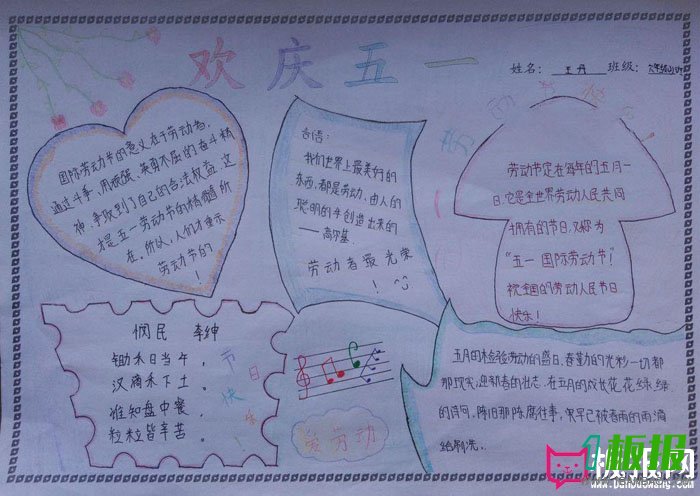 欢庆五一
姓名：王丹 班级：
国际劳动节的意义在于劳动者，
通过斗争，用顽强、英勇不屈的奋斗精
神，争取到了自己的合法权益，这
才是五一劳动节的精髓所
在。所以，人们才重示
劳动节的
！
名语：
我们世界上最美好的
东西，都是劳动，由人的
聪明的手创造出来的
——高尔基.
劳动者最光荣
！
劳动节定在每年的五月一
日，它是全世界劳动人民共同
拥有的节日，又称为
“五一国际劳动节！”
祝全国的劳动人民节日
快乐！
悯民 李绅
锄禾日当午，
汉滴禾下土。
谁知盘中餐，
粒粒皆辛苦。
节日
快乐
爱劳动
五月的检验劳动的盛日，春勤的光彩一切都
那现实，迎新春的壮志，在五月的成长花花绿绿
的诗句，陈旧那陈腐往事，果早已被春雨的雨滴
给刷洗。
板报网
www.banbaowang.com